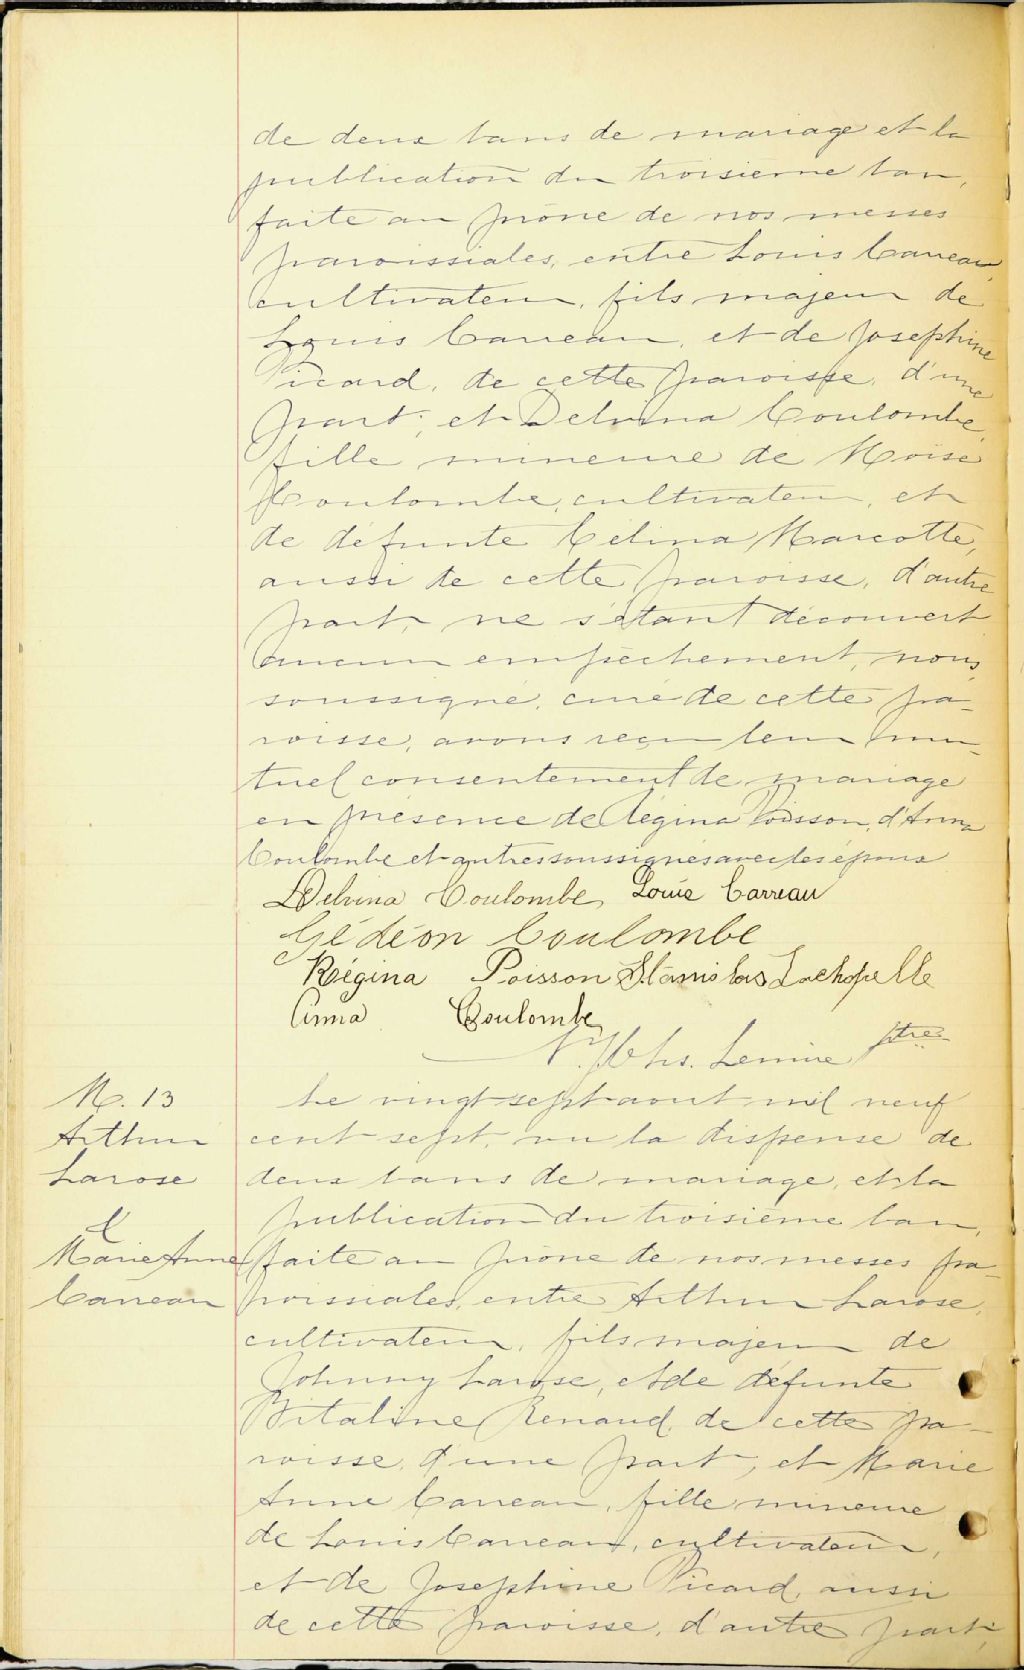 de deux bans de mariage et la
publication du troisième ban,
faite au prône de nos messes
paroissiales, entre Louis Carreau,
cultivateur, fils majeur de
Louis Carreau, et de Josephine
Picard, de cette paroisse, d'une
part; et Delvina Coulombe,
fille mineure de Moïse
Coulombe, cultivateur, et
de défunte Célina Marcotte,
aussi de cette paroisse, d'autre
part, ne s'étant découvert
aucun empêchement, nous,
soussigné, curé de cette pa-
roisse, avons reçu leur mu-
tuel consentement de mariage
en présence de Régina Poisson, d'Anna
Coulombe et autres soussignés avec les époux
Delvina Coulombe, Louis Carreau
Gédéon Coulombe
Régina Poisson Stanislas Lachapelle
Anna Coulombe
Lemire Ptre
M. 13
Arthur
Larose
&
Marie Anne
Carreau
Le vingt-sept août mil neuf
cent sept, vu la dispense de
deux bans de mariage, et la
publication du troisième ban,
faite au prône de nos messes pa-
roissiales, entre Arthur Larose,
cultivateur, fils majeur de
Johnny Larose, et de défunte
Vitaline Renaud, de cette pa-
roisse, d'une part, et Marie
Anne Carreau, fille mineure
de Louis Carreau, cultivateur,
et de Josephine Picard, aussi
de cette paroisse, d'autre part,